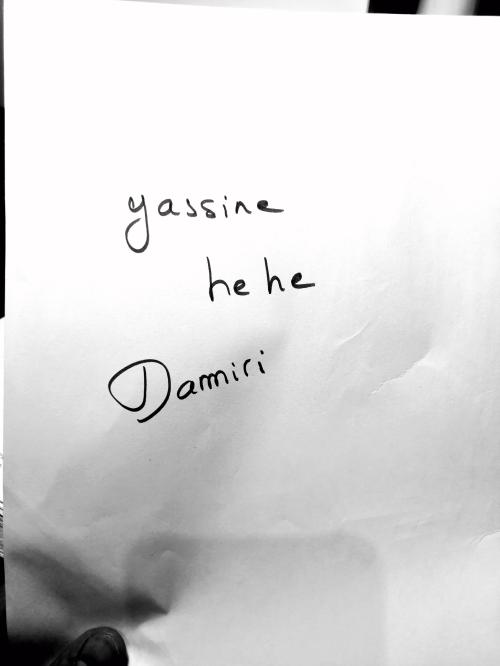 yassine
hehe
Damiri